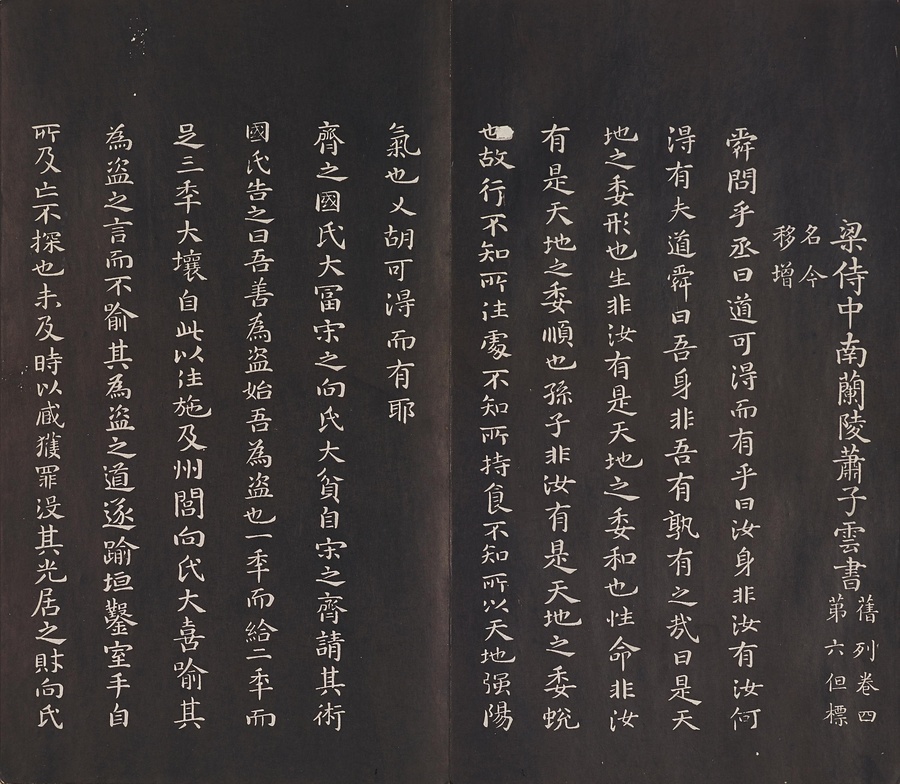 梁侍中南蘭陵蕭子雲書
舊列卷四
第六但標
名今
移增
舜問乎丞曰道可得而有乎曰汝身非汝有汝何
得有夫道舜曰吾身非吾有孰有之哉曰是天
地之委形也生非汝有是天地之委和也性命非汝
有是天地之委順也孫子非汝有是天地之委蛻
也故行不知所往處不知所持食不知所以天地强陽
氣也又胡可得而有耶
齊之國氏大冨宋之向氏大貧自宋之齊請其術
國氏告之曰吾善為盜始吾為盜也一秊而給二秊而
足三秊大壤自此以往施及州閭向氏大喜踰其
為盜之言而不喻其為盜之道遂踰垣鑿室手自
所及亡不探也未及時以臧獲罪沒其先居之財向氏